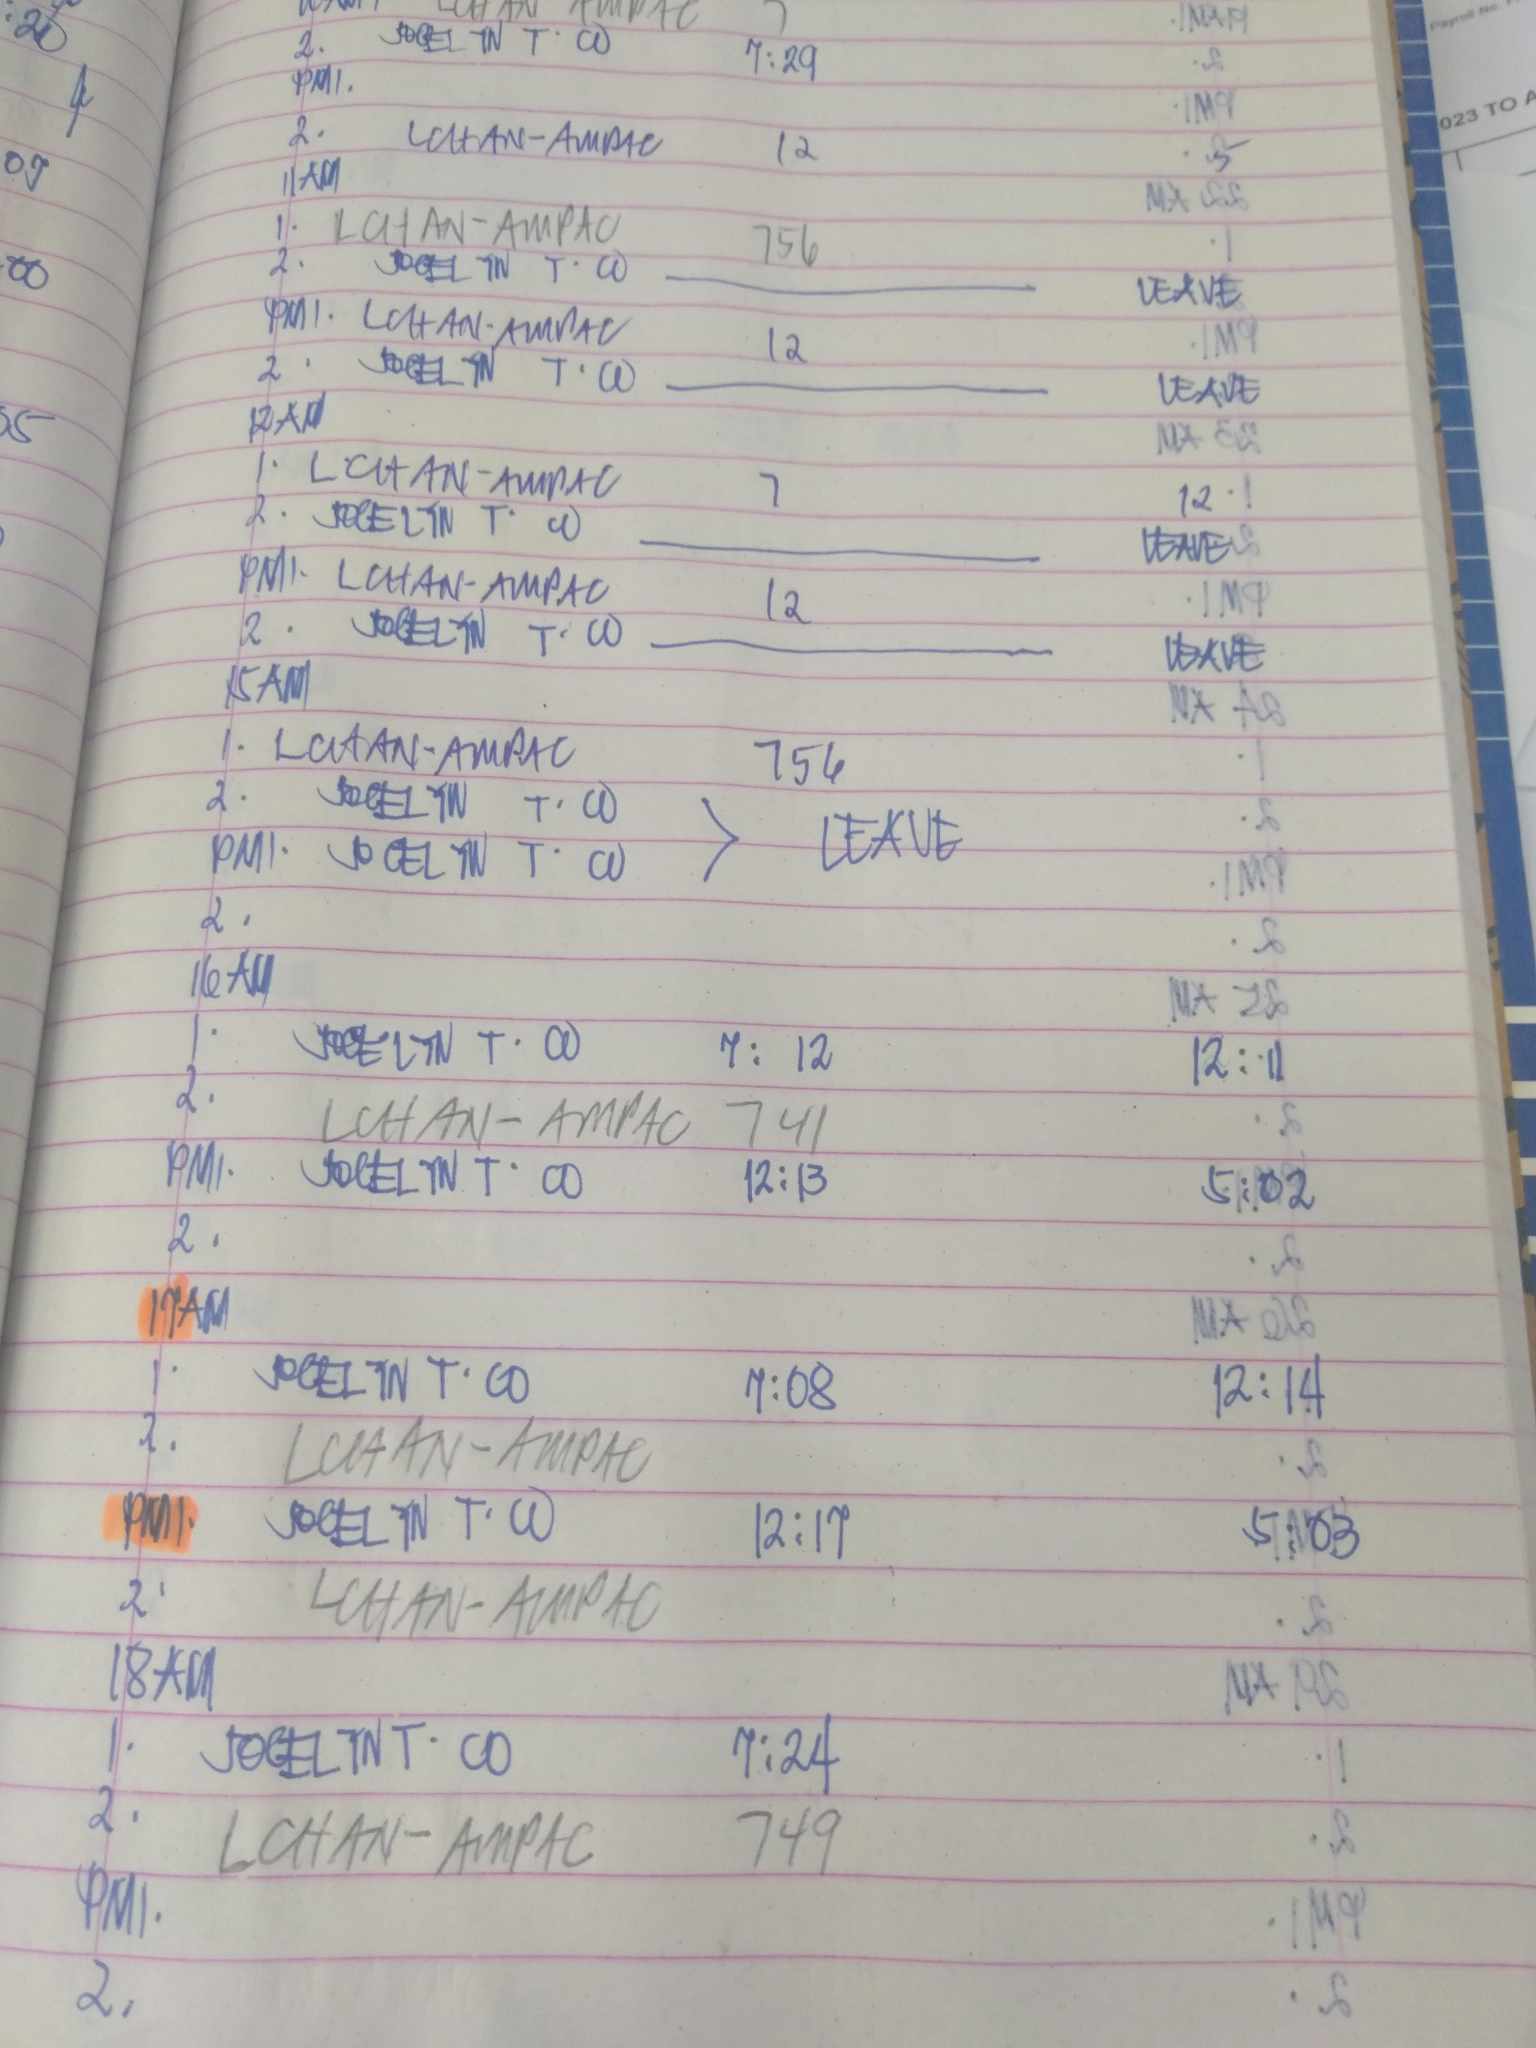 LCHAN AMPAC 7
2. JOCELYN T. CO 7:29
PM1.
2. LCHAN-AMPAC 12
11AM
1. LCHAN-AMPAC 756
2. JOCELYN T. CO LEAVE
PM1. LCHAN-AMPAC 12
2. JOCELYN T. CO LEAVE
12AM
1. LCHAN-AMPAC 7 12
2. JOCELYN T. CO LEAVE
PM1. LCHAN-AMPAC 12
2. JOCELYN T. CO LEAVE
15AM
1. LCHAN-AMPAC 756
2. JOCELYN T. CO
PM1. JOCELYN T. CO > LEAVE
2.
16AM
1. JOCELYN T. CO 7:12 12:11
2. LCHAN-AMPAC 741
PM1. JOCELYN T. CO 12:13 5:02
2.
17AM
1. JOCELYN T. CO 7:08 12:14
2. LCHAN-AMPAC
PM1. JOCELYN T. CO 12:17 5:03
2. LCHAN-AMPAC
18AM
1. JOCELYN T. CO 7:24
2. LCHAN-AMPAC 749
PM1.
2.
:20
09
-00
05
Payroll No.
023 TO A